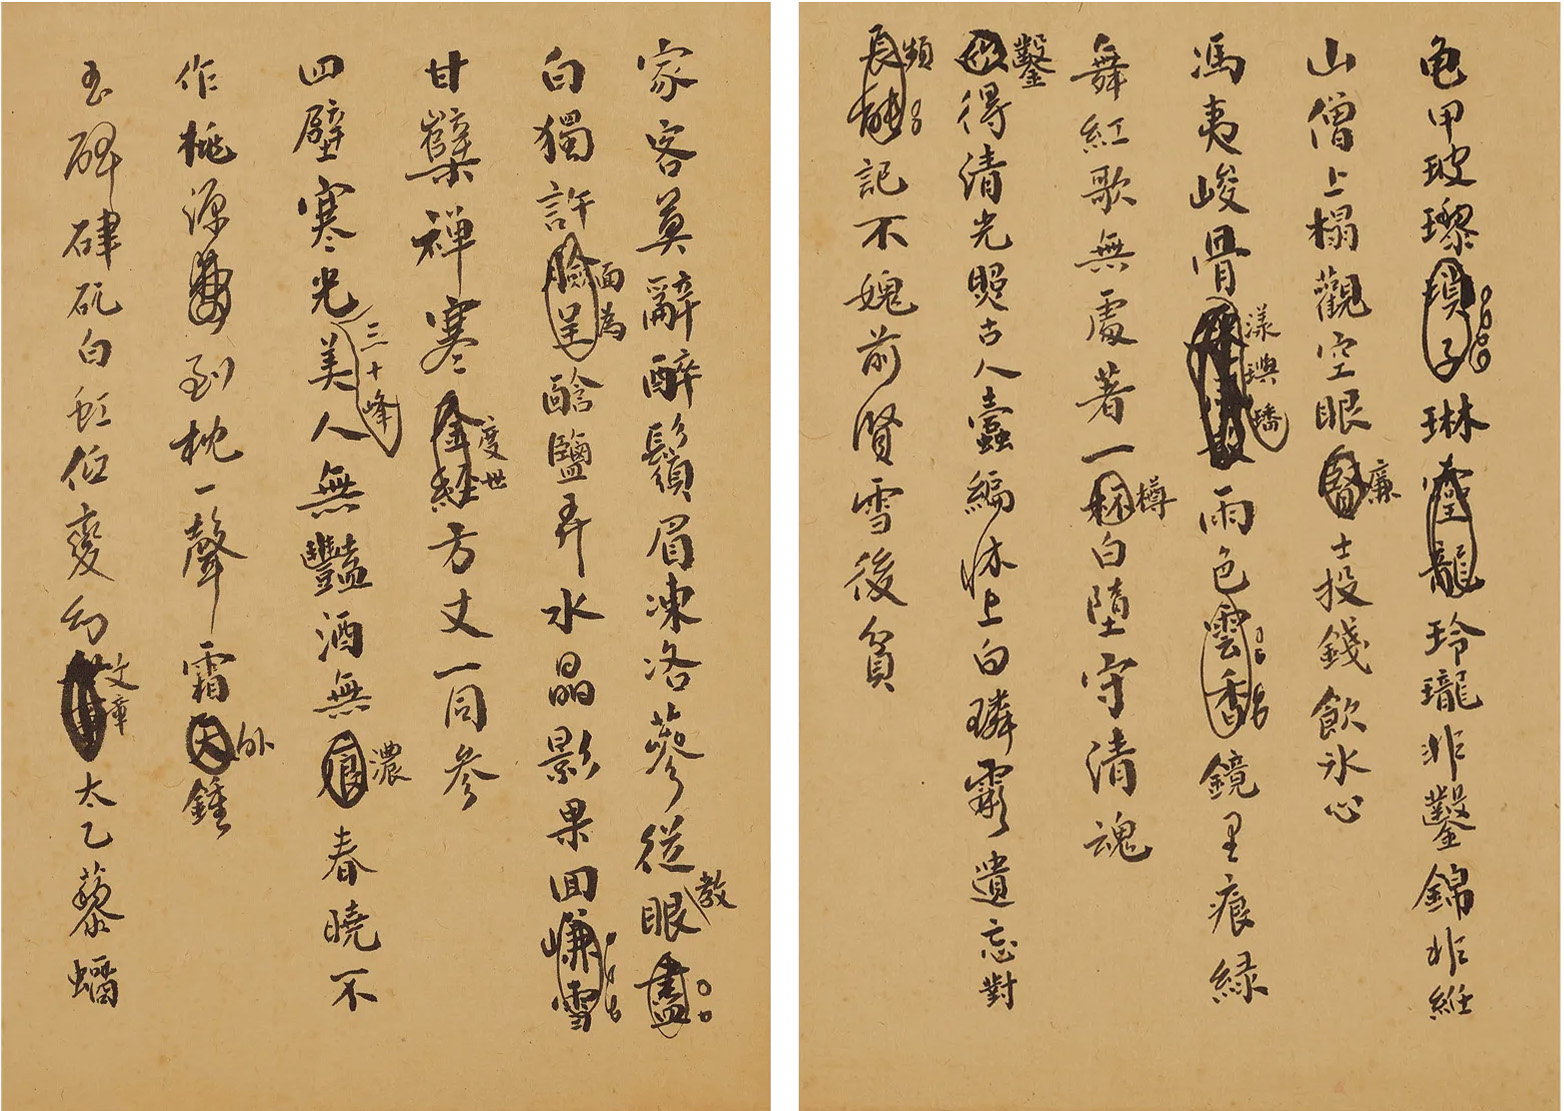 亀甲玻瓈瑣子琳龍玲瓏非鑿錦非紝
山僧上榻觀空眼賢廉士投錢飲氷心
馮夷峻骨漾璵璠雨色雲香鏡里痕綠
舞紅歌無處著一杯樽白墮守清魂
也鑿得清光照古人蠹編牀上白璘霦遺忘對
長頻檠記不媿前賢雪後貧
家客莫辭醉鬚眉凍洛蔘從教眼盡
白獨許臉呈面為醶鹽弄水晶影果回嫌雪
甘糵禪寒金経度世方丈一同參
四壁寒光美人三十峰無豔酒無濃春曉不
作桃源夢到枕一聲霜天外鍾
玉碑硉矹白虹低變幻文章太乙藜蟠